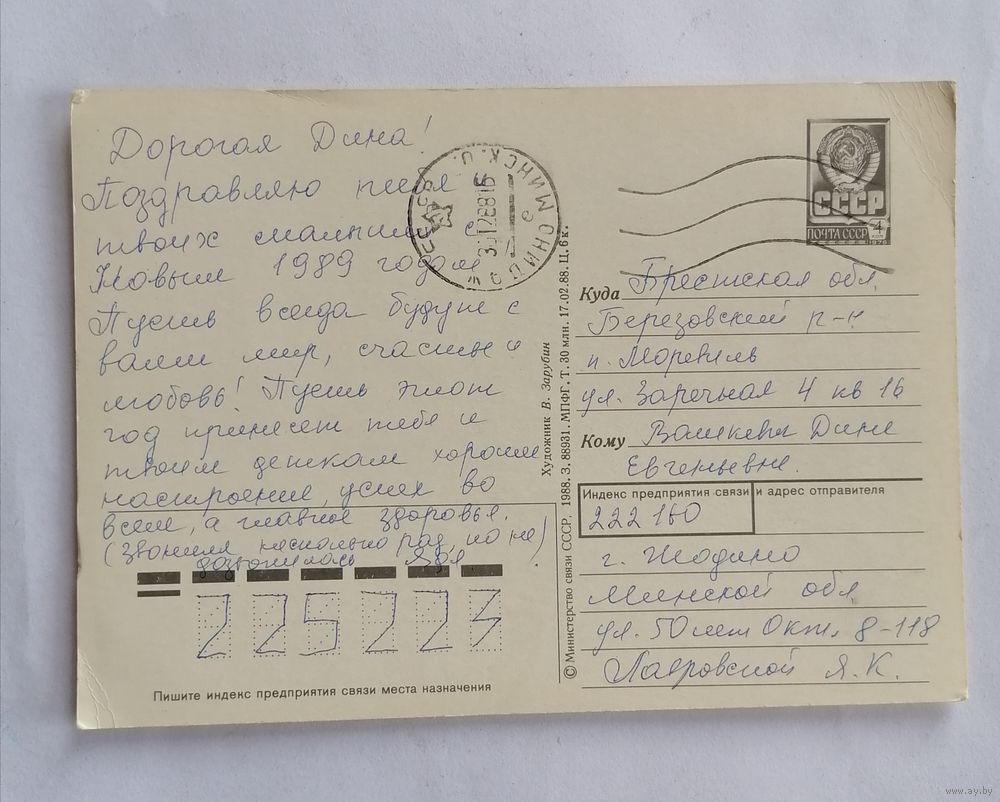 Дорогая Дина!
Поздравляю тебя и
твоих малышей с
Новым 1989 годом
Пусть всегда будут с
вами мир, счастье и
любовь! Пусть этот
год принесет тебе и
твоим деткам хорошее
настроение, успех во
всем, а главное здоровья.
(Звонила несколько раз, но не)
дозвонилась Ядя
225223
Пишите индекс предприятия связи места назначения
Художник В. Зарубин
© Министерство связи СССР, 1988. З. 88931. МПФГ. Т. 30 млн. 17.02.88. Ц. 6 к.
СССР
ПОЧТА СССР 4
1976
Куда Брестская обл.
Березовский р-н
п.
ул. Заречная 4 кв 16
Кому Вашкевич Дине
Евгеньевне.
Индекс предприятия связи и адрес отправителя
222160
г. Жодино
Минской обл
ул. 50 лет Окт. 8-118
Лавровской Я. К.
www.ay.by